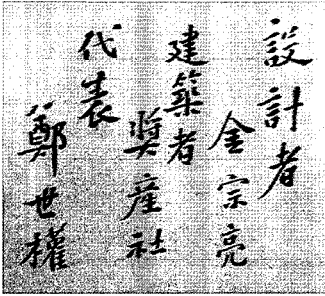 設計者
金宗亮
建築者
奬産社
代表
鄭世權